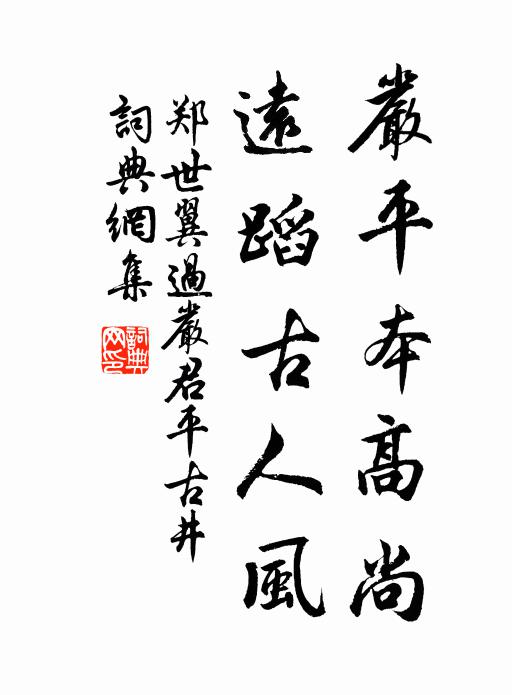 嚴平本高尚
遠蹈古人風
郑世翼過嚴君平古井
詞典網集
詞典网印